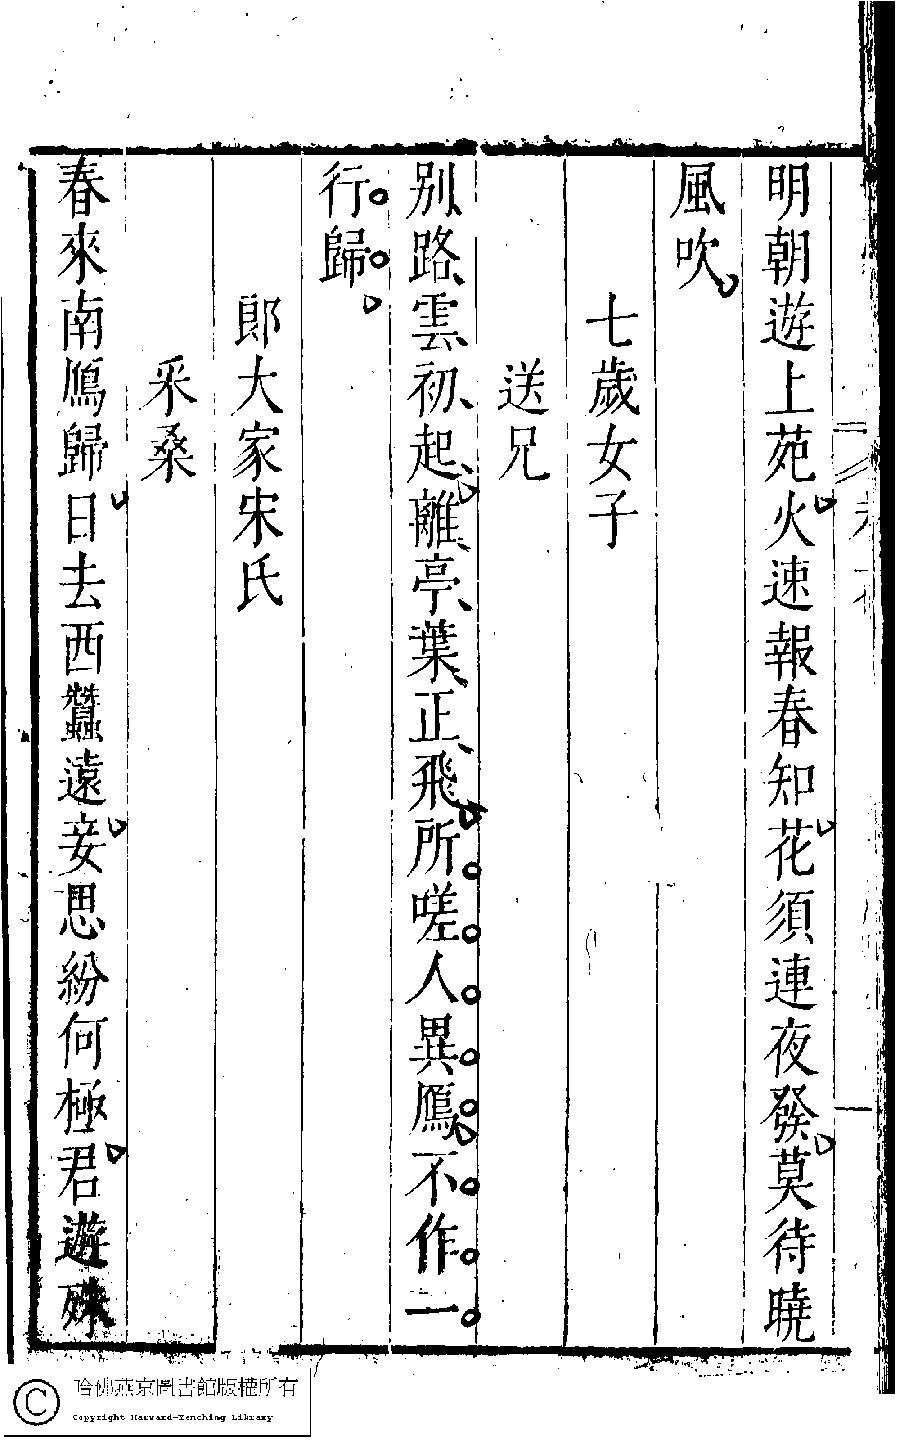 明朝遊上苑火速報春知花須連夜發莫待曉
風吹
七歲女子
送兄
別路雲初起離亭葉正飛所嗟人異鴈不作一
行歸
郎大家宋氏
采桑
春來南鴈歸日去西蠶遠妾思紛何極君遊殊
哈佛燕京圖書館版權所有
Copyright Harvard-Yenching Library